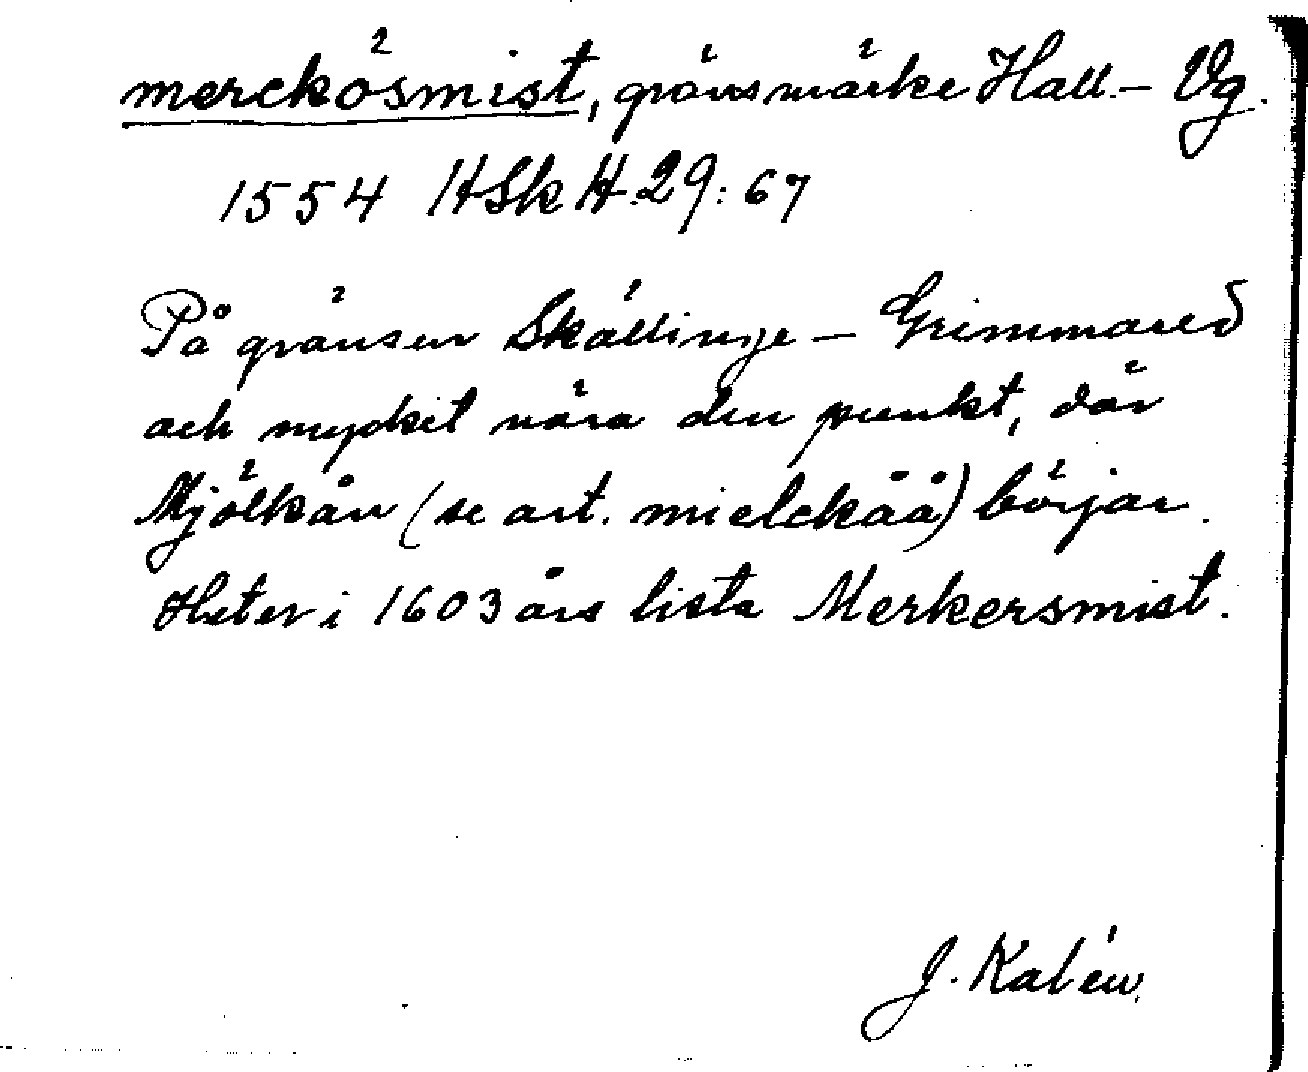 merckösmist, gränsmärke Hall.– Vg.
1554 HSkH.29:67
På gränsen Skällinge – Grimmared
och mycket nära den punkt, där
Mjölkån (se art. mielckåå) börjar.
Heter i 1603 års lista Merkersmist.
J. Kalén